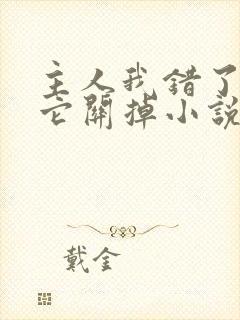 主人我错了
它關掉小說
戴金